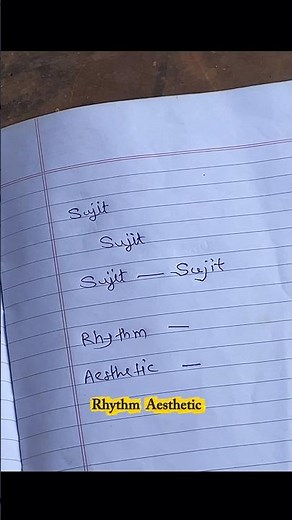 Sujit
Sujit
Sujit — Sujit
Rhythm —
Aesthetic —
Rhythm Aesthetic